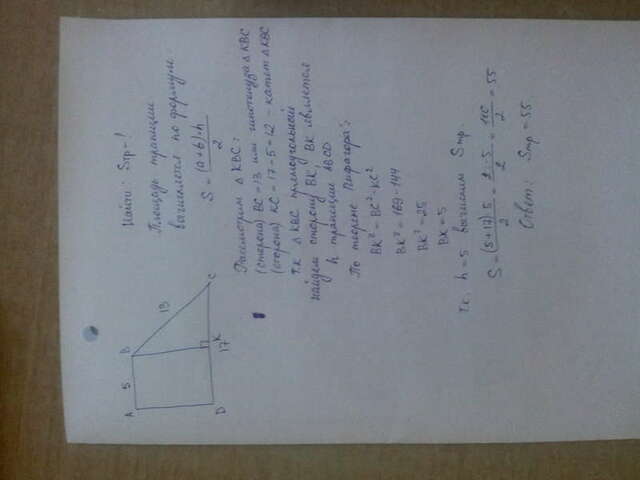 A 5 B
13
D 17 K C
Найти: Sтр-?
Площадь трапеции
вычисляется по формуле:
S = (a+b)·h / 2
Рассмотрим Δ KBC:
(сторона) BC = 13 или гипотенуза Δ KBC
(сторона) KC = 17-5 = 12 - катет Δ KBC
т.к Δ KBC прямоугольный
найдем сторону BK, BK является
h трапеции ABCD
По теореме Пифагора:
BK² = BC²-KC²
BK² = 169-144
BK² = 25
BK = 5
т.к. h = 5 вычислим Sтр.
S = (5+17)·5 / 2 = 22·5 / 2 = 110 / 2 = 55
Ответ: Sтр = 55.